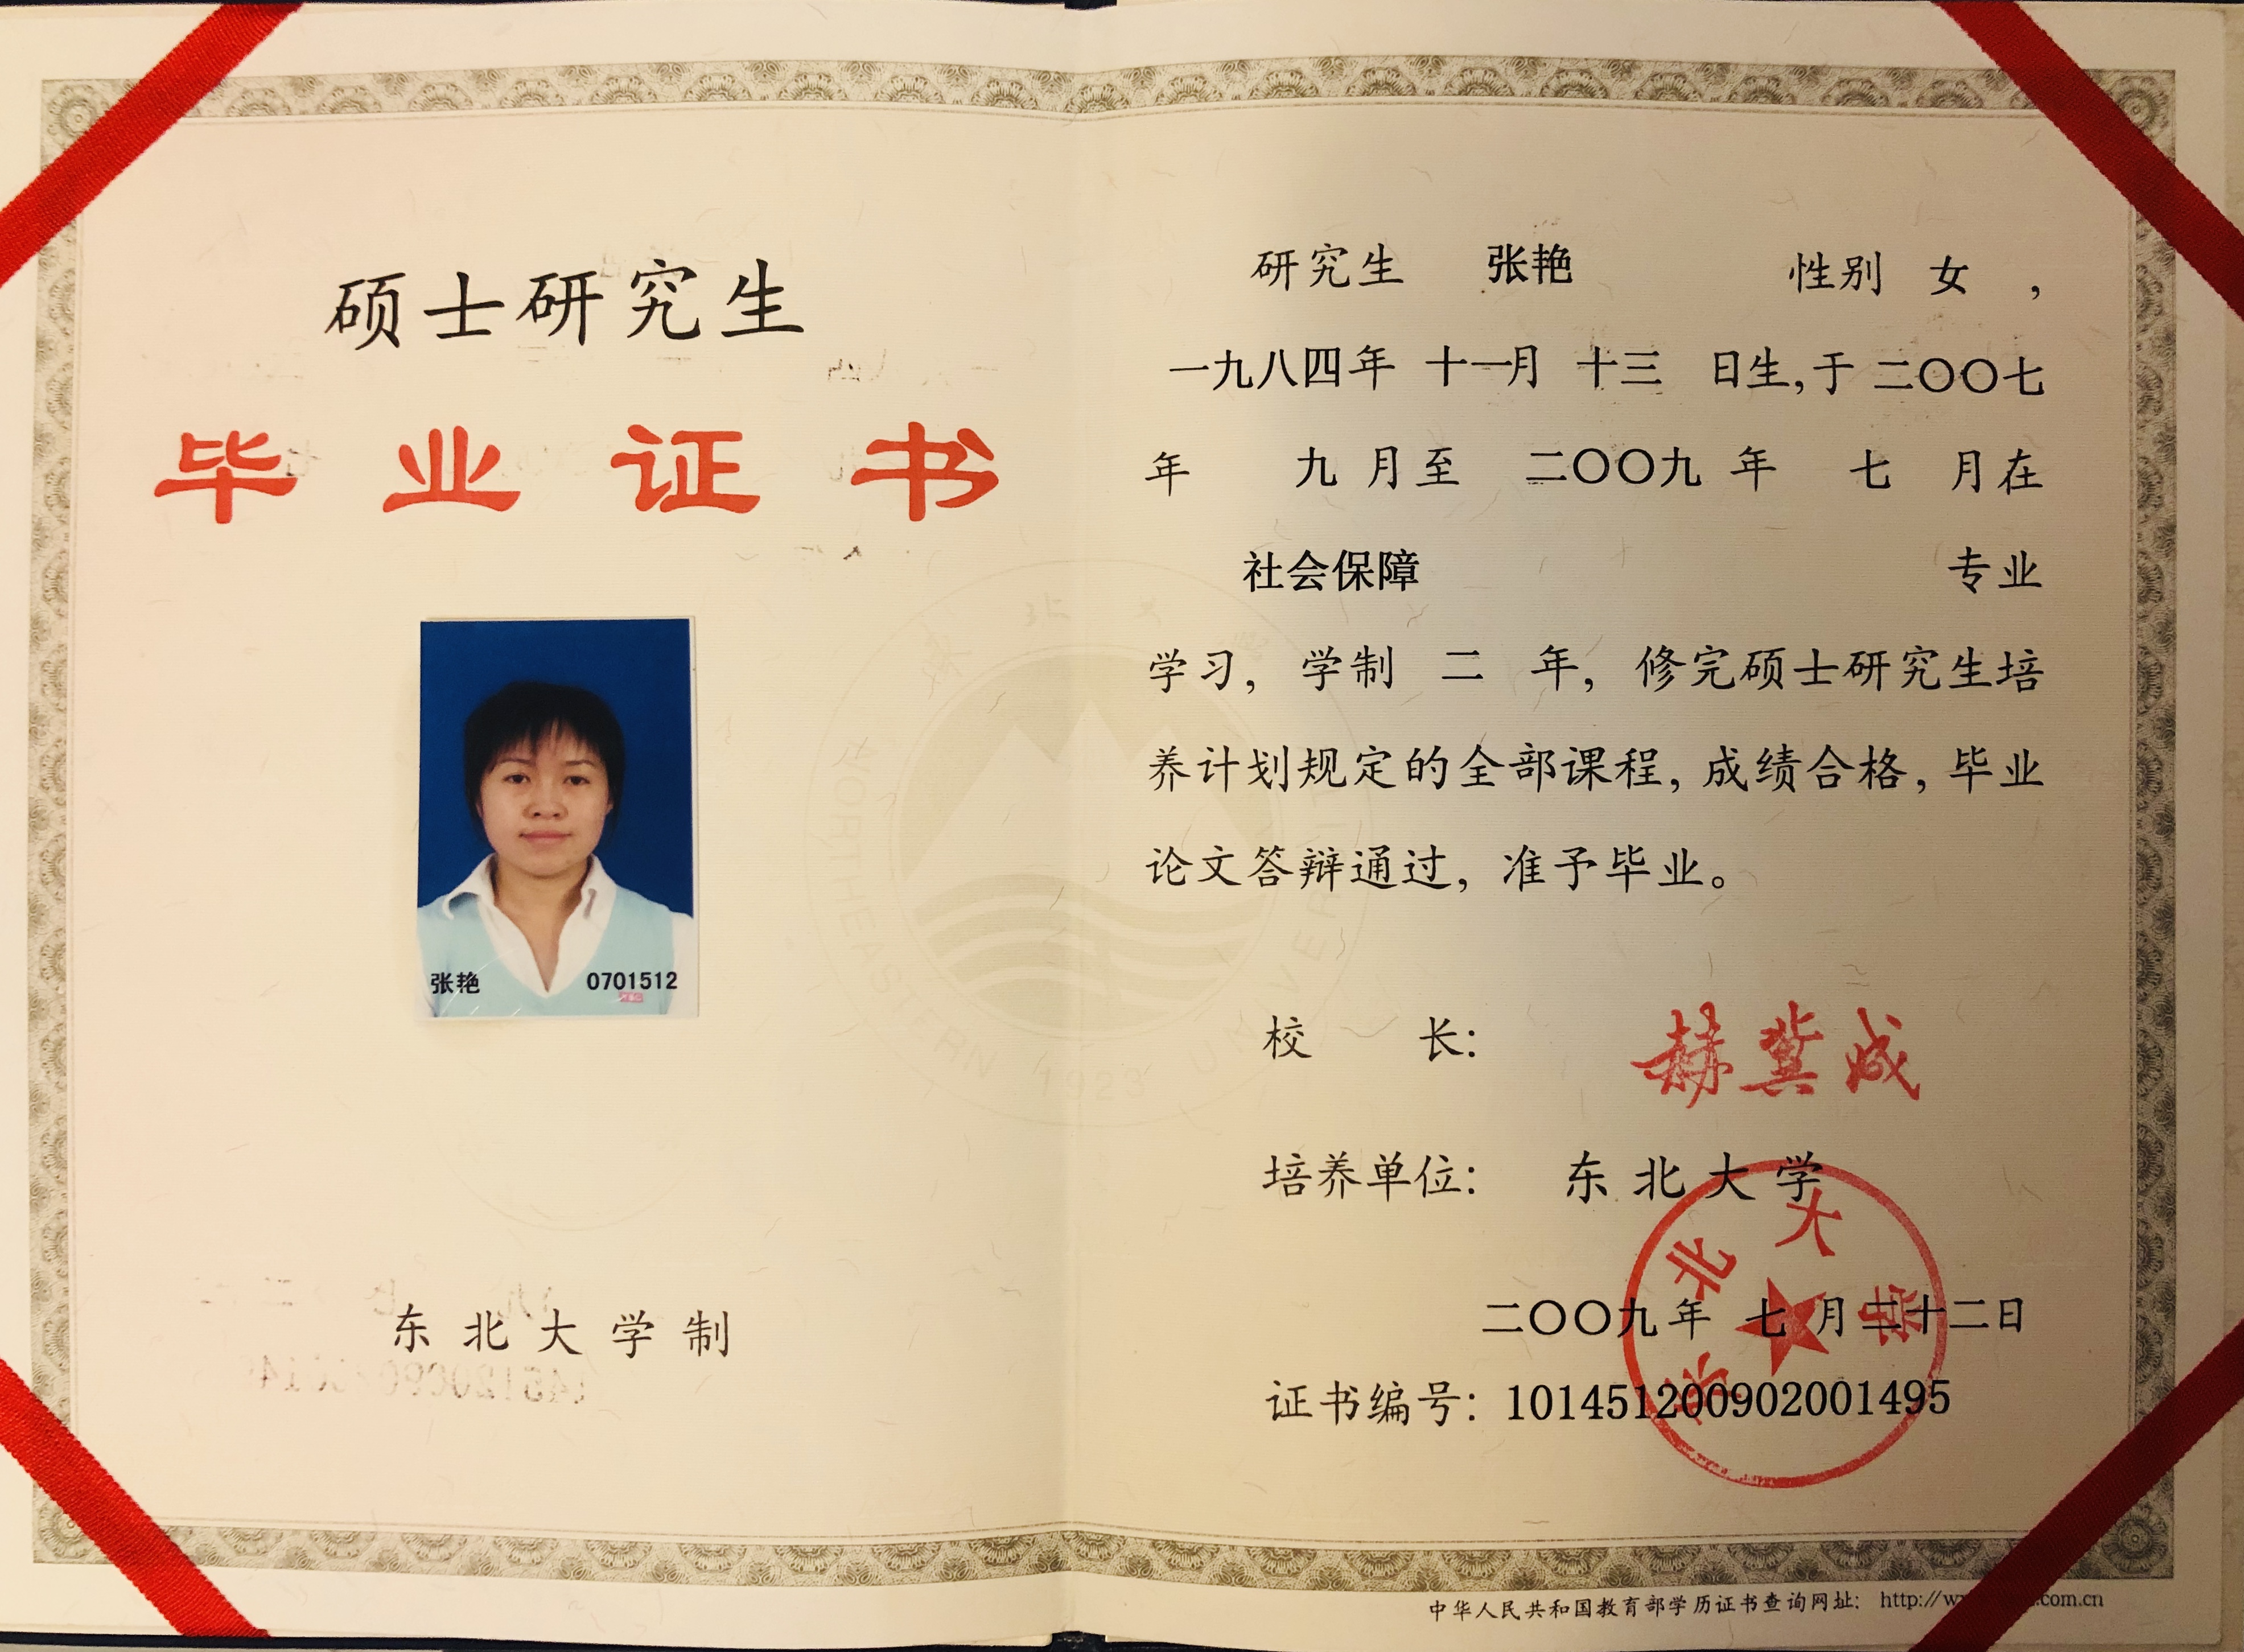 硕士研究生
毕业证书
张艳 0701512
东北大学制
研究生 张艳 性别 女 ,
一九八四年 十一月 十三 日生,于 二〇〇七
年 九 月至 二〇〇九 年 七 月在
社会保障 专业
学习, 学制 二 年, 修完硕士研究生培
养计划规定的全部课程, 成绩合格, 毕业
论文答辩通过, 准予毕业。
校 长: 赫冀成
培养单位: 东北大学
东北大学
二〇〇九年 七 月二十二日
证书编号: 101451200902001495
中华人民共和国教育部学历证书查询网址: http://w .com.cn
NORTHEASTERN 1923 UNIVERSITY